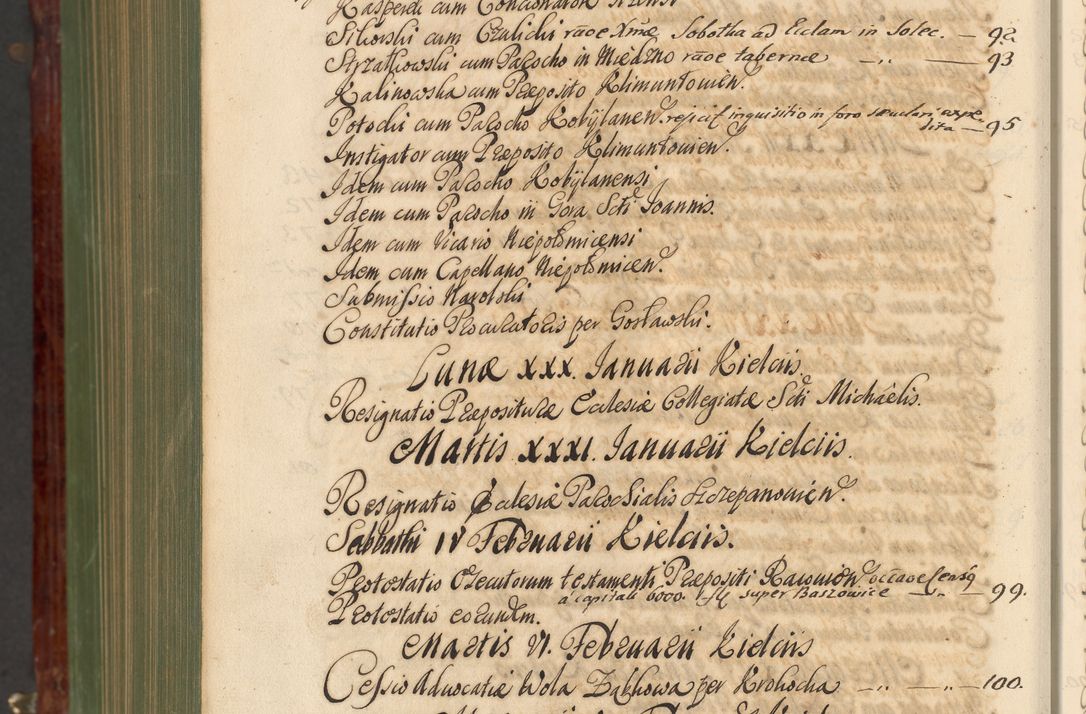 Kasperek cum Concionatore
Silicorshi cum Czulichi rãoe Xmæ Sobothua ad Eclam in Solec. — 92
Strzałkowshi cum Parocho in Miedzno rãoe tabernæ — „ — 93
Kalinowsha cum Præposito Klimuntowien.
Potochi cum Parocho Kobÿlanen. rejicit inquisitio in foro sæculari expe-
dita — 95
Instigator cum Præposito Klimuntowien.
Idem cum Parocho Kobÿlanensi
Idem cum Parocho in Gora Scti Joannis.
Idem cum Vicario Niepołomicensi
Idem cum Capellano Niepołomicen.
Submissio Narolshi
Constitutio Procuratoris per Gosławshi.
Lunæ XXX. Januarii Kielciis.
Resignatio Præposituræ Ecclesiæ Collegiatæ Scti Michaëlis.
Martis XXXI. Januarii Kielciis.
Resignatio Ecclesiæ Parochialis Szczepanowien.
Sabbathi IV Februarii Kielciis.
Protestatio Executorum testamenti Præpositi
à capitali 6000. super Baszowice — „ — 99.
Protestatio eorundem.
Martis VI. Februarii Kielciis
Cessio Advocatiæ Wola Ząbkowa per Krohocha — „ — „ — 100.